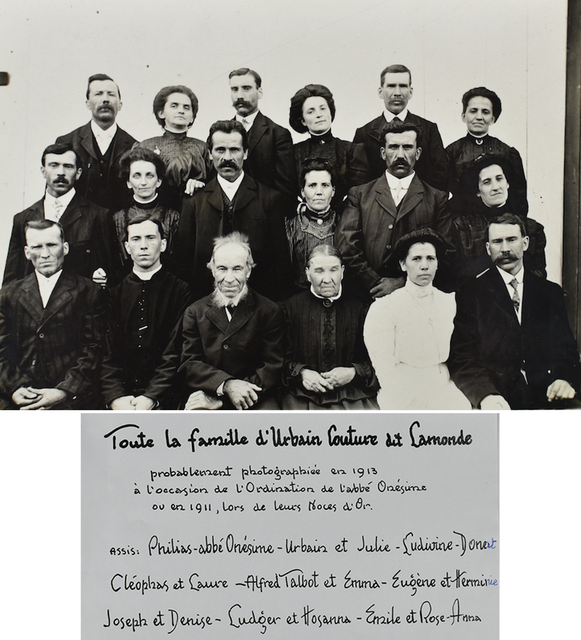 Toute la famille d'Urbain Couture dit Lamonde
probablement photographiée en 1913
à l'occasion de l'Ordination de l'abbé Onésime
ou en 1911, lors de leurs Noces d'Or.
Assis: Philias-abbé Onésime - Urbain et Julie - Ludivine - Donat
Cléophas et Laure - Alfred Talbot et Emma - Eugène et Herminie
Joseph et Denise - Ludger et Hosanna - Emile et Rose-Anna